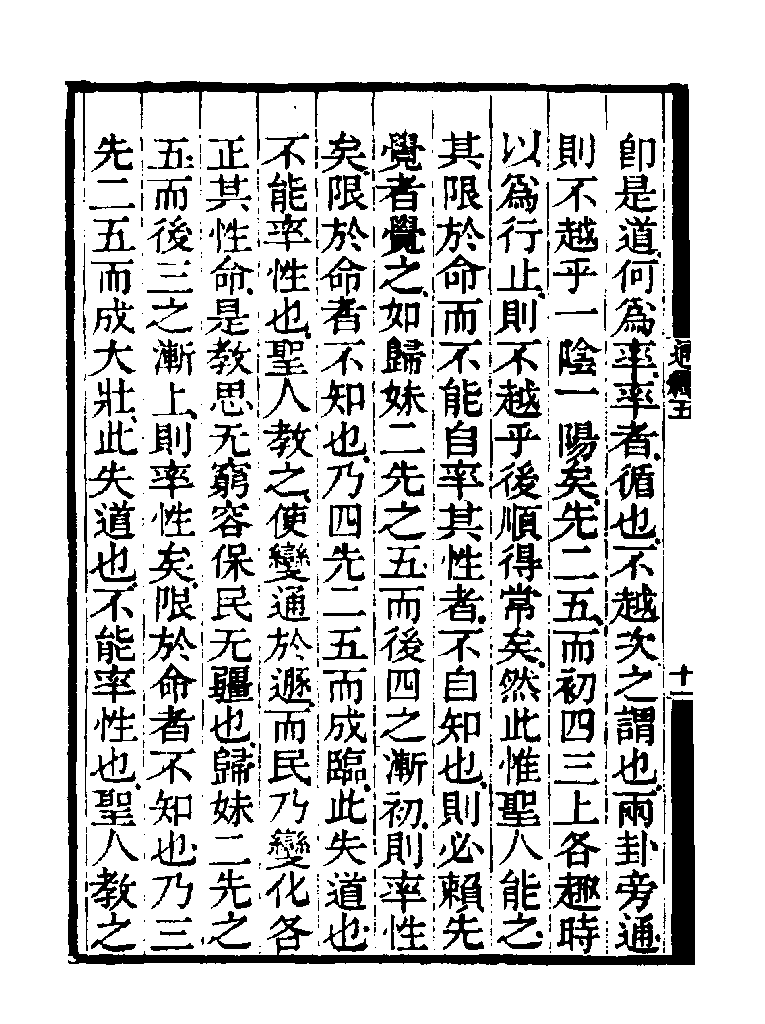 卽是道何爲率率者循也不越次之謂也兩卦旁通
則不越乎一陰一陽矣先二五而初四三上各趣時
以爲行止則不越乎後順得常矣然此惟聖人能之
其限於命而不能自率其性者不自知也則必賴先
覺者覺之如歸妹二先之五而後四之漸初則率性
矣限於命者不知也乃四先二五而成臨此失道也
不能率性也聖人教之使變通於遯而民乃變化各
正其性命是教思无窮容保民无疆也歸妹二先之
五而後三之漸上則率性矣限於命者不知也乃三
先二五而成大壯此失道也不能率性也聖人教之
五
十一